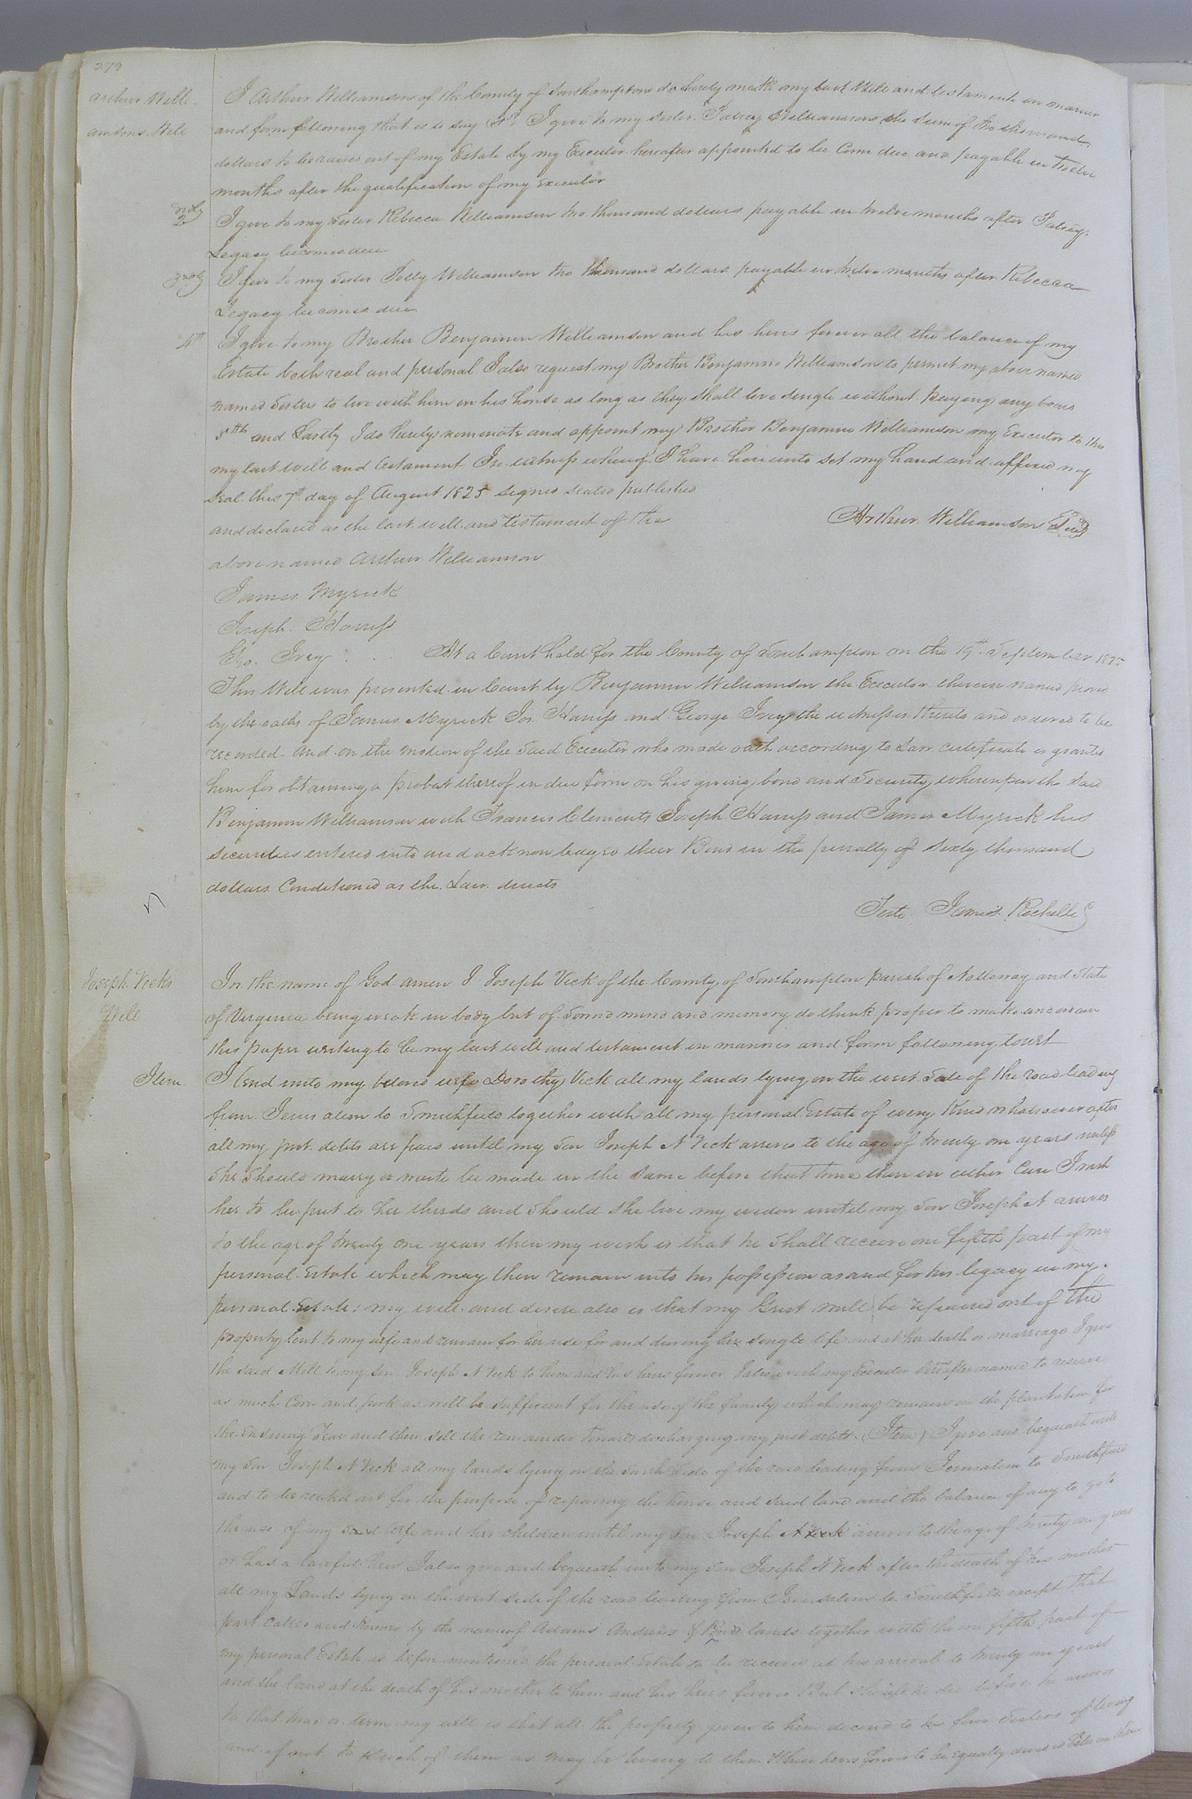 Arthur Willi-
amsons Will
I Arthur Williamson of the County of Southampton do hereby make my last Will and testament in manner
and form following that is to say 1st I give to my sister Patsey Williamson the sum of two thousand
dollars to be raised out of my Estate by my Executor hereafter appointed to be Come due and payable in twelve
months after the qualification of my executor
2ndly I give to my sister Rebecca Williamson two thousand dollars payable in twelve months after Patsey
Legacy becomes due
3rdly I give to my sister Polly Williamson two thousand dollars payable in twelve months after Rebecca
Legacy becomes due
4th I give to my Brother Benjamin Williamson and his heirs forever all the balance of my
Estate both real and personal I also request my Brother Benjamin Williamson to permit my above named
named Sisters to live with him in his house as long as they shall live single without Paying any board
5th and Lastly I do hereby nominate and appoint my Brother Benjamin Williamson my Executor to this
my last will and testament In witness whereof I have hereunto set my hand and affixed my
seal this 7th day of August 1825 signed sealed published
and declared as the last will and testament of the
Arthur Williamson Seal
above named Arthur Williamson
James Myrick
Joseph Harriss
Geo. Ivey
At a Court held for the County of Southampton on the 19th September 1825
This Will was presented in Court by Benjamin Williamson the Executor therein named proved
by the oaths of James Myrick Jos Harriss and George Ivey the witnesses thereto and ordered to be
recorded and on the motion of the said Executor who made oath according to Law certificate is granted
him for obtaining a probat thereof in due form on his giving bond and security whereupon the said
Benjamin Williamson with Francis Clements Joseph Harriss and James Myrick his
securities entered into and acknowledged their Bond in the penalty of sixty thousand
dollars Conditioned as the Law directs
Teste James Rochelle C
Joseph Vicks
Will
In the name of God amen I Joseph Vick of the County of Southampton parish of Nottoway and State
of Virginia being weak in body but of sound mind and memory do think proper to make and ordain
this paper writing to be my last will and testament in manner and form following towit
Item I lend unto my beloved wife Dorothy Vick all my lands lying on the west side of the road leading
from Jerusalem to Smithfield together with all my personal Estate of every kind whatsoever after
all my just debts are paid until my son Joseph N Vick arrives to the age of twenty one years unless
she should marry or waste be made in the same before that time then in either Case I wish
her to be put to her thirds and should she live my widow until my son Joseph N arrives
to the age of twenty one years then my wish is that he shall receive one fifth part of my
personal Estate which may then remain into his possession as and for his legacy in my
personal estate: my will and desire also is that my Grist mill be reserved out of the
property lent to my wife and remain for her use for and during her single life and at her death or marriage I give
the said Mill to my son Joseph N Vick to him and his heirs forever I also wish my Executor hereafter named to reserve
as much Corn and pork as will be sufficient for the use of the family which may remain on the plantation for
the ensuing Year and then sell the remainder towards discharging my just debts. (Item) I give and bequeath unto
my son Joseph N Vick all my lands lying on the South side of the road leading from Jerusalem to Smithfield
and to be rented out for the purpose of repairing the house and said land and the balance if any to go to
the use of my said wife and her children until my son Joseph N Vick arrives to the age of twenty one years
or has a lawful heir I also give and bequeath unto my son Joseph N Vick after the death of his mother
all my Lands lying on the west side of the road leading from Jerusalem to Smithfield except that
part called and known by the name of Adams Andrews & lands together with the one fifth part of
my personal Estate as before mentioned the personal Estate to be received at his arrival to twenty one years
and the land at the death of his mother to him and his heirs forever But should he die before he arrives
to that time or term my will is that all the property given to him descend to his four Sisters if living
and if not to such of them as may be living to them & their heirs forever to be equally divided